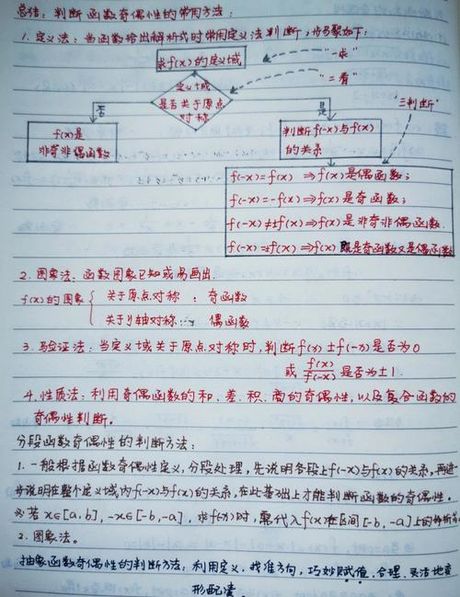 总结：判断函数奇偶性的常用方法：
1. 定义法：当函数给出解析式时常用定义法判断，步骤如下：
求f(x)的定义域
"一求"
定义域是否关于原点对称
"二看"
否
是
"三判断"
f(x)是
非奇非偶函数
判断f(-x)与f(x)
的关系
f(-x)=f(x) ⇒f(x)是偶函数；
f(-x)=-f(x)⇒f(x)是奇函数；
f(-x)≠±f(x)⇒f(x)是非奇非偶函数.
f(-x)=±f(x)⇒f(x)既是奇函数又是偶函数
2. 图象法：函数图象已知或易画出.
f(x)的图象{ 关于原点对称：奇函数
关于y轴对称… 偶函数
3. 验证法：当定义域关于原点对称时，判断f(x)±f(-x)是否为0
或 f(x)/f(-x) 是否为±1.
4. 性质法：利用奇偶函数的和、差、积、商的奇偶性，以及复合函数的
奇偶性判断。
分段函数奇偶性的判断方法：
1. 一般根据函数奇偶性定义，分段处理，先说明各段上f(-x)与f(x)的关系，再进一
步说明在整个定义域内f(-x)与f(x)的关系，在此基础上才能判断函数的奇偶性。
※若x∈[a,b]，-x∈[-b,-a]，求f(-x)时，需代入f(x)在区间[-b,-a]上的解析式
2. 图象法。
抽象函数奇偶性的判断方法：利用定义，找准方向，巧妙赋值，合理、灵活地变
形配凑。